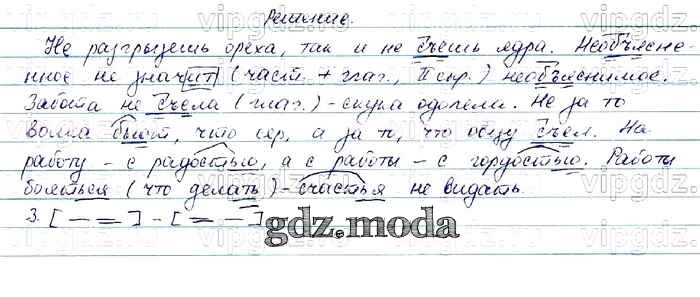 Решение.
Не разгрызешь ореха, так и не съешь ядра. Необъясне-
нное не значит (част. + глаг., II спр.) необъяснимое.
Забота не съела (глаг.) - скука одолела. Не за то
волка бьют, что сер, а за то, что овцу съел. На
работу - с радостью, а с работы - с гордостью. Работы
бояться (что делать) - счастья не видать.
3. [— =] - [= —]
gdz.moda
vipgdz.ru